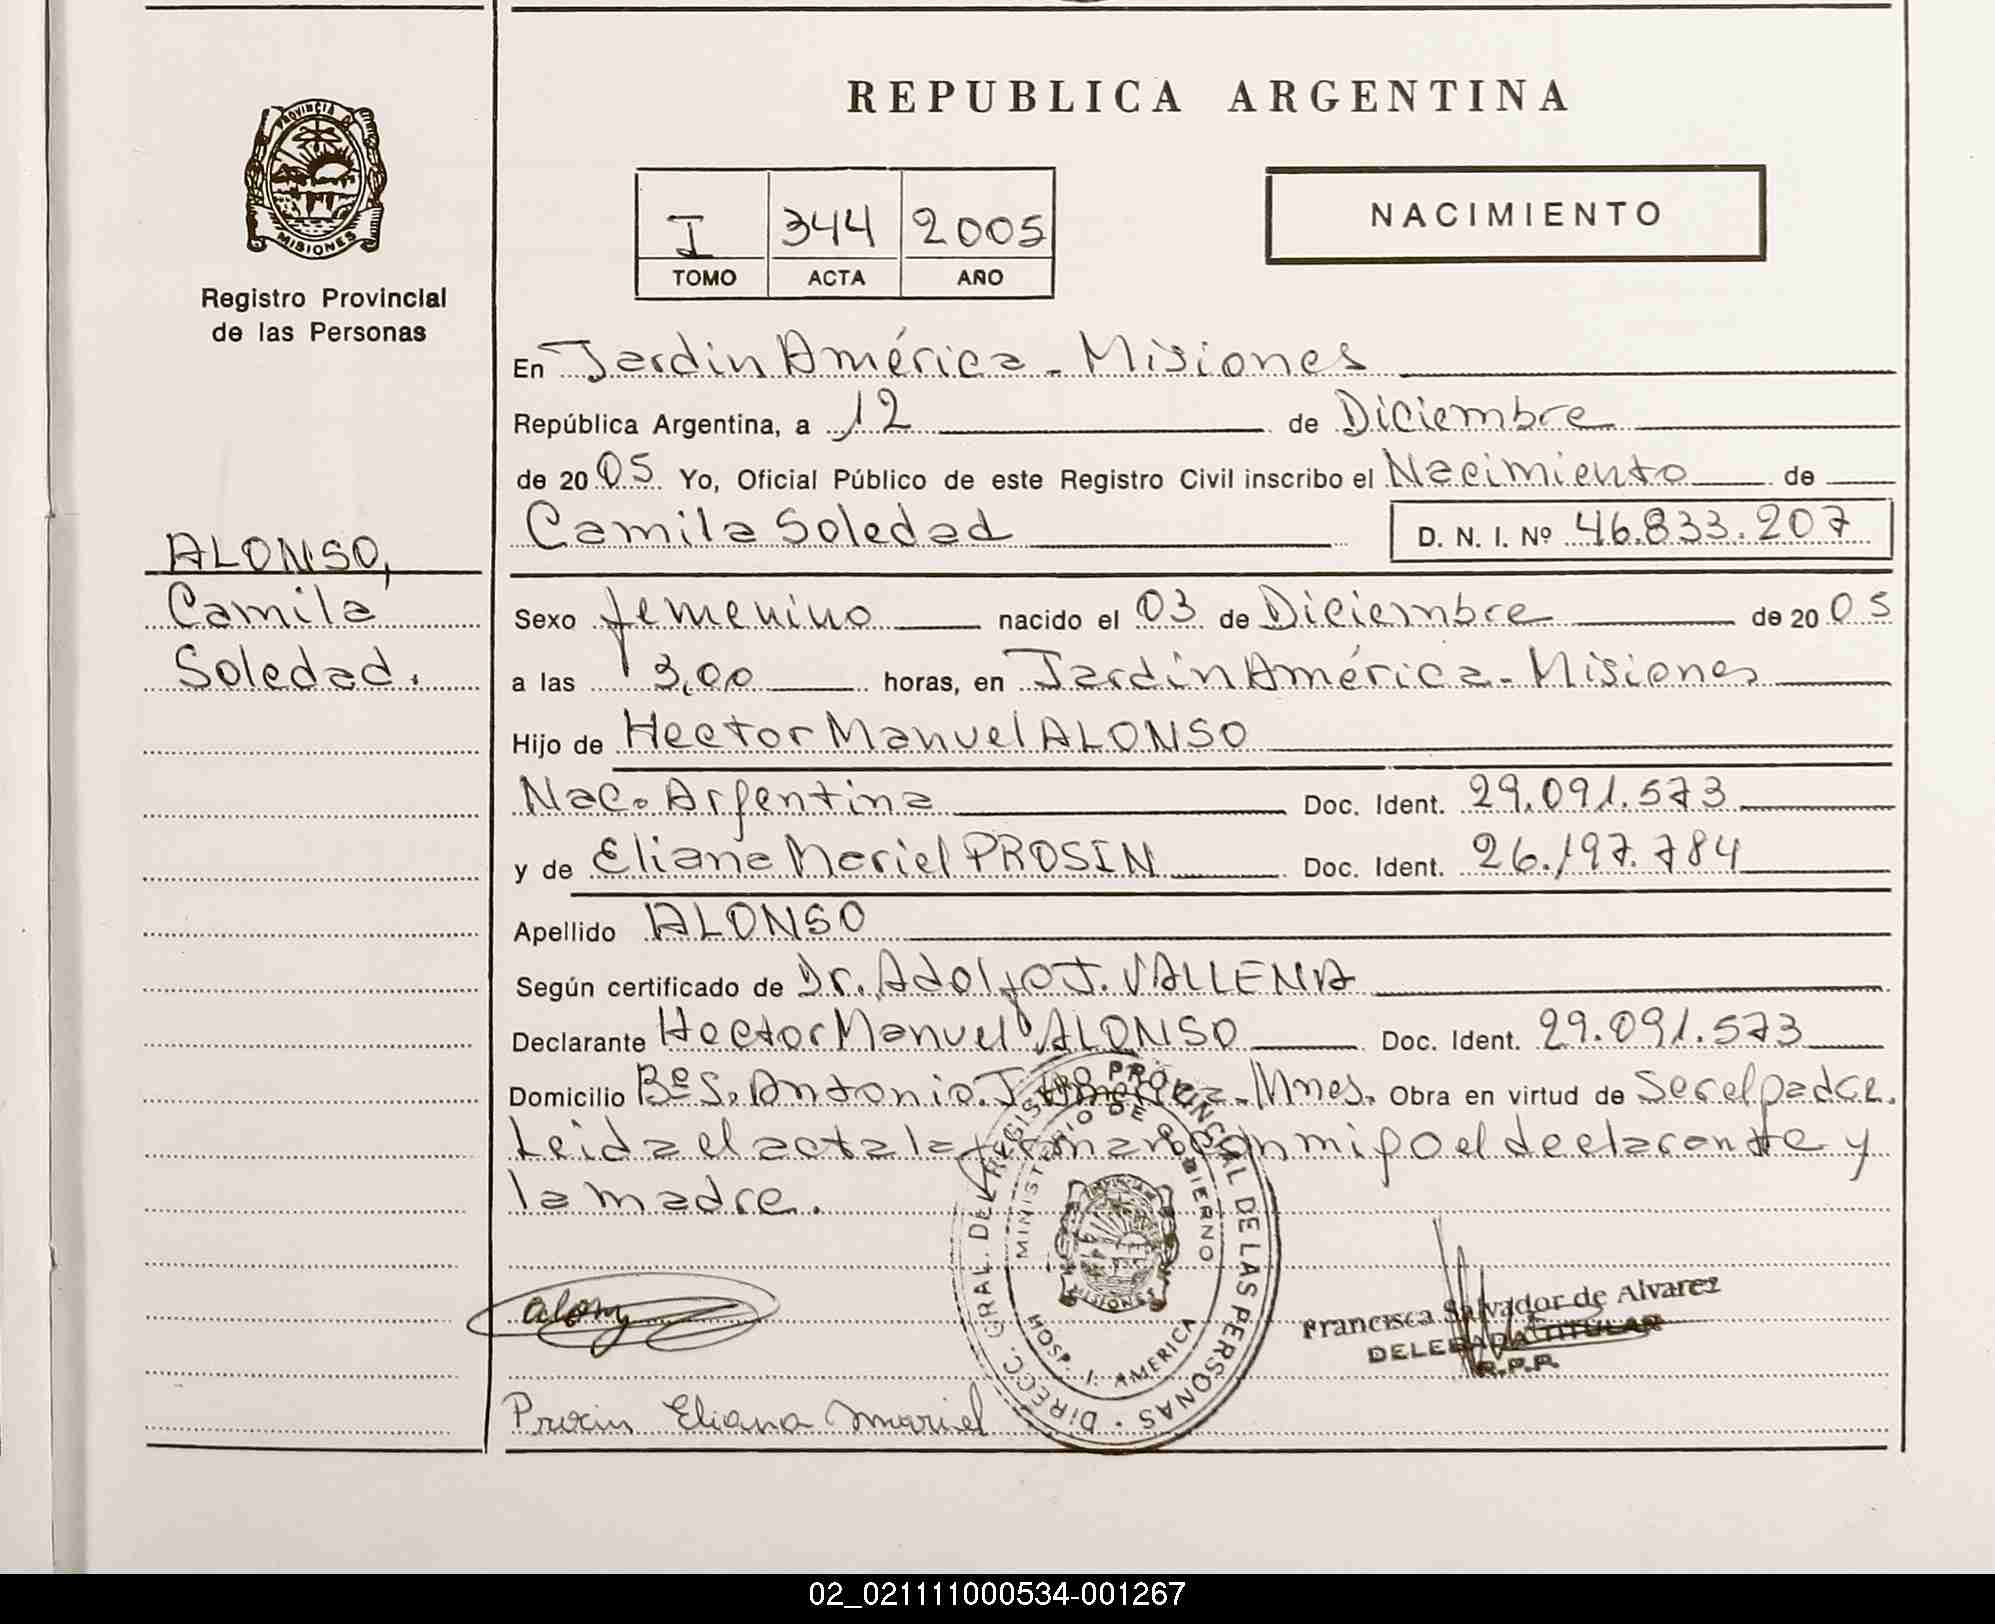 REPUBLICA ARGENTINA
PROVINCIA DE
MISIONES
Registro Provincial
de las Personas
I 344 2005
TOMO ACTA AÑO
NACIMIENTO
En Jardin América - Misiones
República Argentina, a 12 de Diciembre
de 2005 Yo, Oficial Público de este Registro Civil inscribo el Nacimiento de
Camila Soledad D. N. I. Nº 46.833.207
ALONSO,
Camila
Soledad.
Sexo femenino nacido el 03 de Diciembre de 2005
a las 3,00 horas, en Jardin América - Misiones
Hijo de Hector Manuel ALONSO
Nac. Argentina Doc. Ident. 29.091.573
y de Eliana Mariel PROSIN Doc. Ident. 26.197.784
Apellido ALONSO
Según certificado de Dr. Adolfo J. VALLENA
Declarante Hector Manuel ALONSO Doc. Ident. 29.091.573
Domicilio Bº S. Antonio. J. América - Mnes. Obra en virtud de Ser el padre.
Leida el acta la firman conmigo el declarante y
la madre.
DIRECC. GRAL. DEL REGISTRO PROVINCIAL DE LAS PERSONAS
MINISTERIO DE GOBIERNO
MISIONES
HOSP. J. AMERICA
Francisca Salvador de Alvarez
DELEGADA TITULAR
R.P.P.
Eliana Mariel
02_021111000534-001267